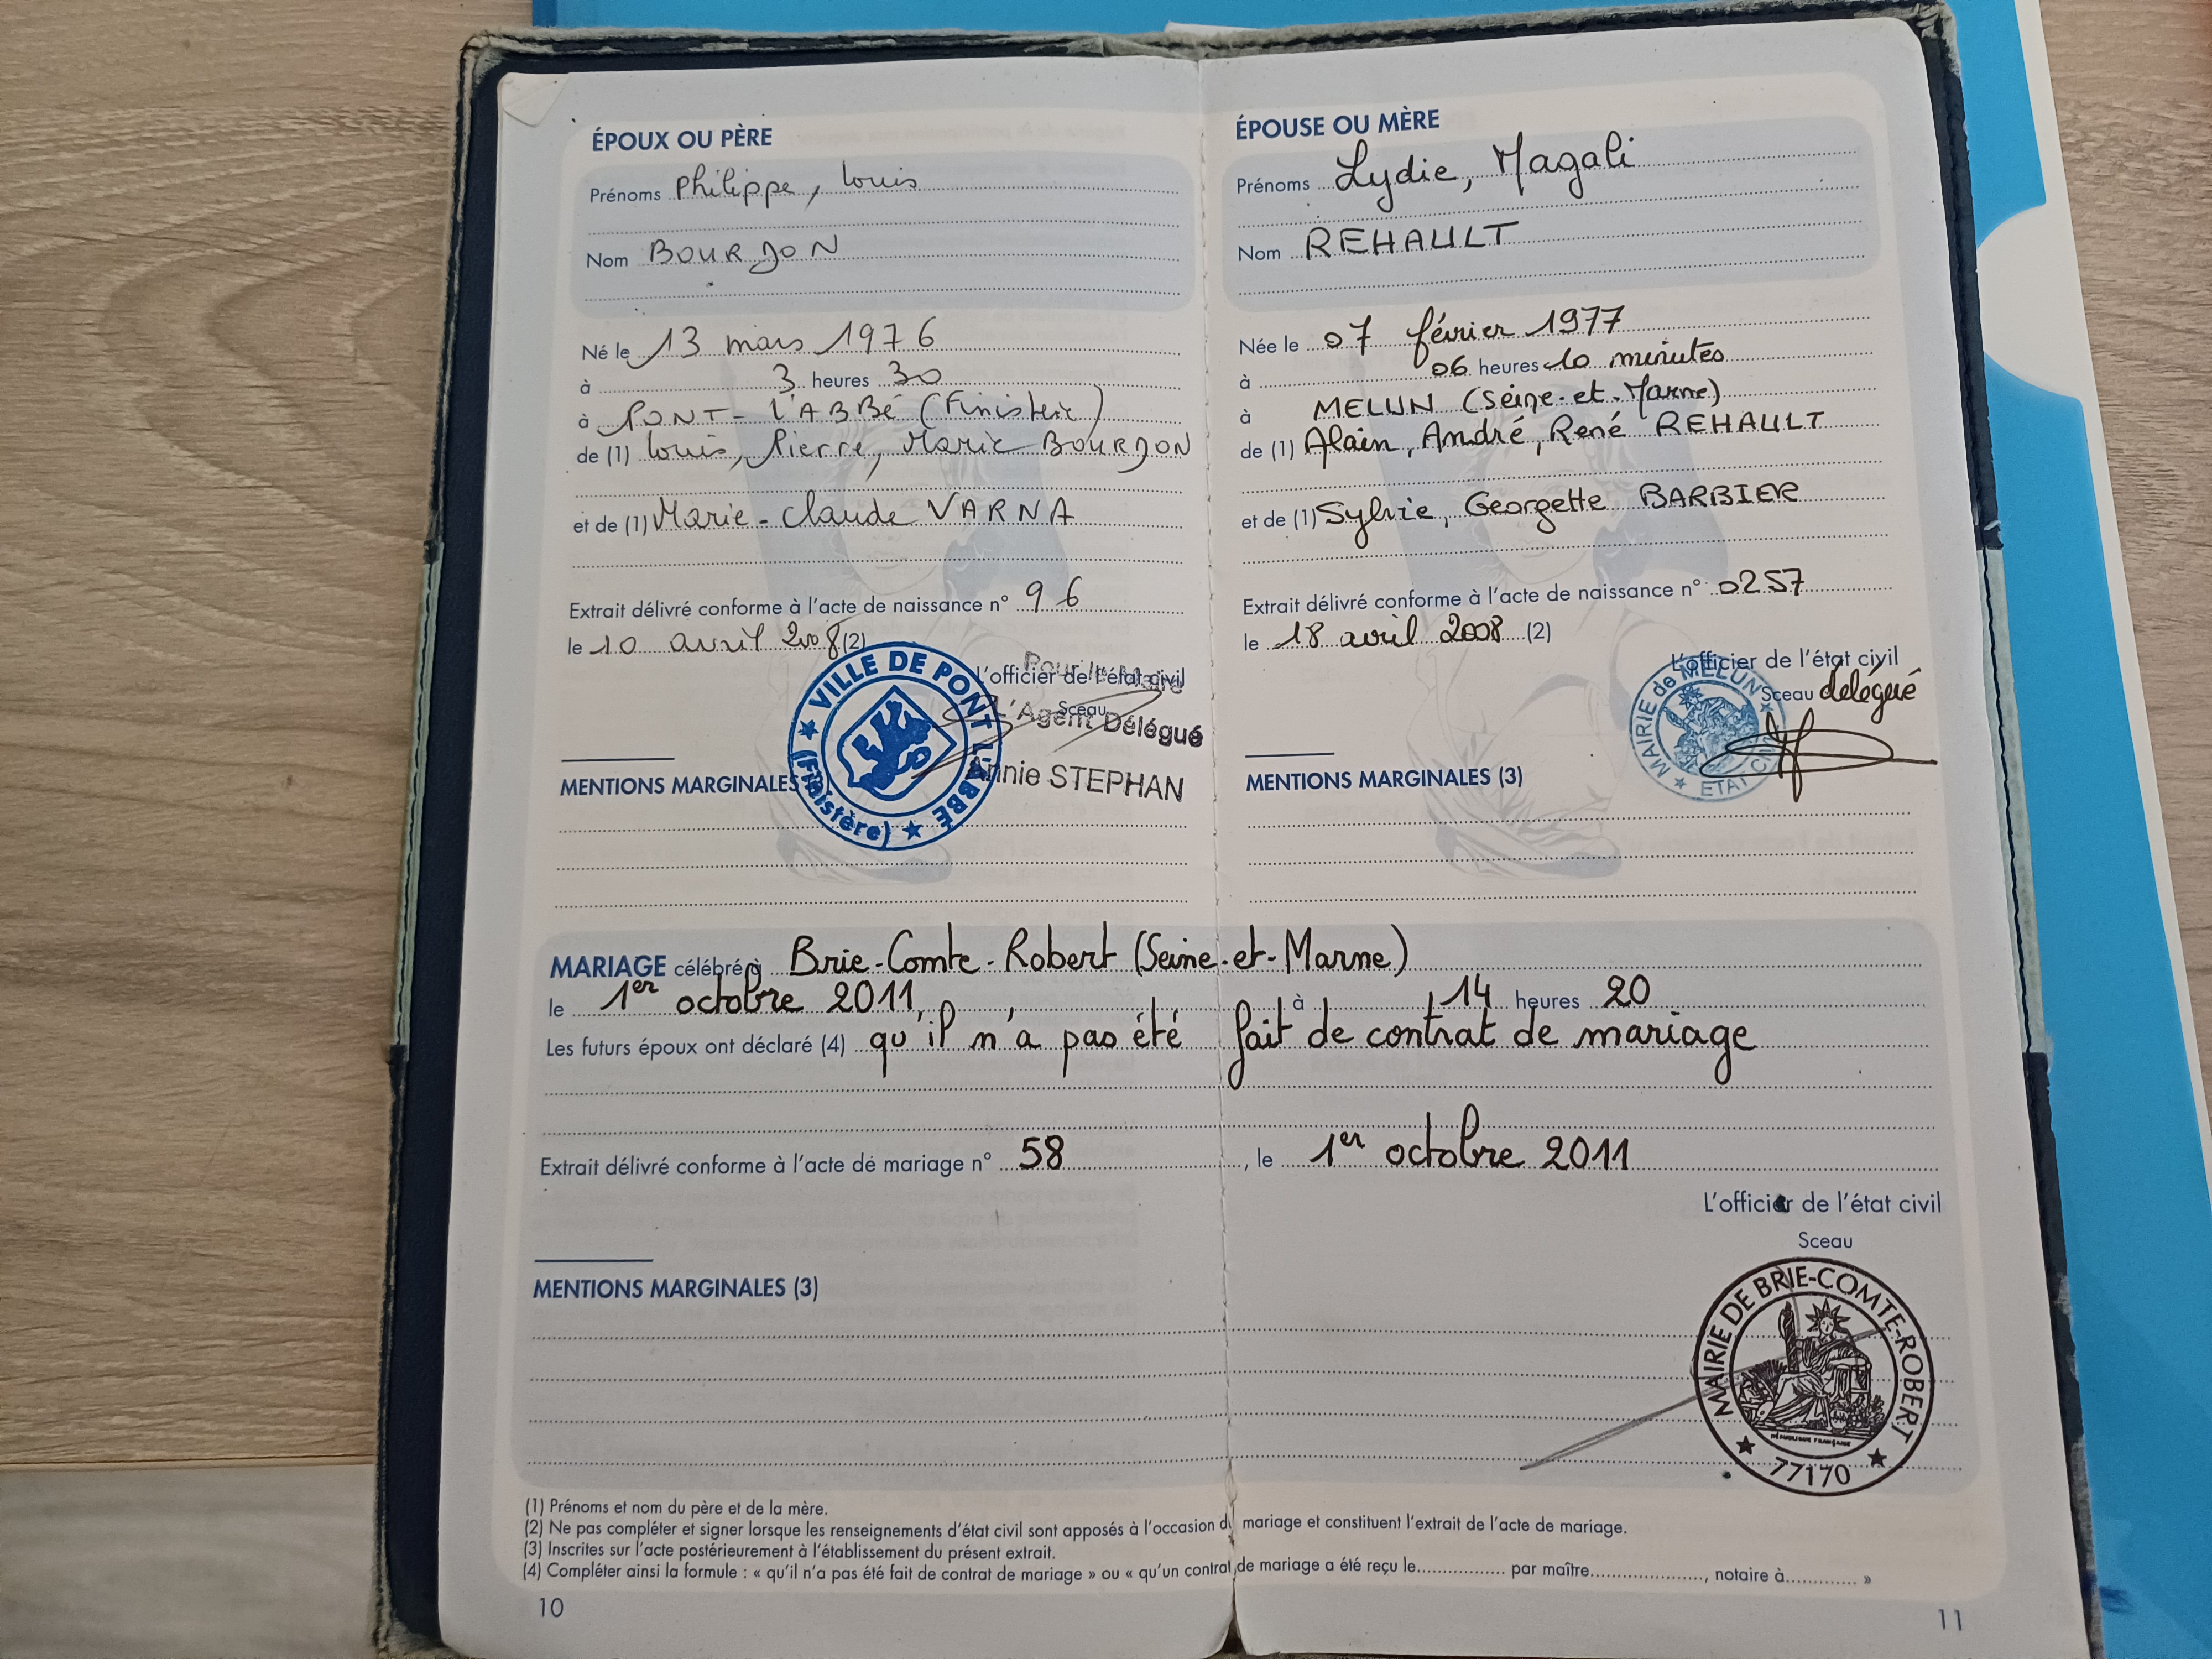 ÉPOUX OU PÈRE
Prénoms Philippe, Louis
Nom BOURDON
Né le 13 mars 1976
à 3 heures 30
à PONT-L'ABBÉ (Finistère)
de (1) Louis, Pierre, Marie BOURDON
et de (1) Marie-Claude VARNA
Extrait délivré conforme à l'acte de naissance n° 96
le 10 avril 2008 (2)
L'officier de l'état civil
Sceau
Pour le Maire
L'Agent Délégué
Annie STEPHAN
VILLE DE PONT L'ABBÉ
(Finistère)
MENTIONS MARGINALES
ÉPOUSE OU MÈRE
Prénoms Lydie, Magali
Nom REHAULT
Née le 07 février 1977
à 06 heures 10 minutes
à MELUN (Seine-et-Marne)
de (1) Alain, André, René REHAULT
et de (1) Sylvie, Georgette BARBIER
Extrait délivré conforme à l'acte de naissance n° 0257
le 18 avril 2008 (2)
L'officier de l'état civil
Sceau délégué
MAIRIE de MELUN
ETAT CIVIL
MENTIONS MARGINALES (3)
MARIAGE célébré à Brie-Comte-Robert (Seine-et-Marne)
le 1er octobre 2011, à 14 heures 20
Les futurs époux ont déclaré (4) qu'il n'a pas été fait de contrat de mariage
Extrait délivré conforme à l'acte de mariage n° 58, le 1er octobre 2011
L'officier de l'état civil
Sceau
MENTIONS MARGINALES (3)
MAIRIE DE BRIE-COMTE-ROBERT
RÉPUBLIQUE FRANÇAISE
77170
(1) Prénoms et nom du père et de la mère.
(2) Ne pas compléter et signer lorsque les renseignements d'état civil sont apposés à l'occasion du mariage et constituent l'extrait de l'acte de mariage.
(3) Inscrites sur l'acte postérieurement à l'établissement du présent extrait.
(4) Compléter ainsi la formule : « qu'il n'a pas été fait de contrat de mariage » ou « qu'un contrat de mariage a été reçu le................. par maître......................, notaire à............. »
10
11